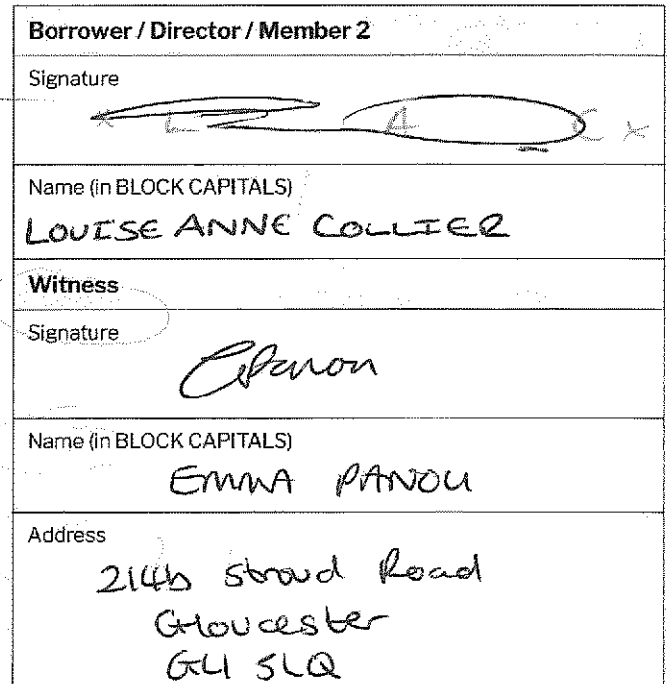 Borrower / Director / Member 2
Signature
x L A C x
Name (in BLOCK CAPITALS)
LOUISE ANNE COLLIER
Witness
Signature
EPanou
Name (in BLOCK CAPITALS)
EMMA PANOU
Address
214b Stroud Road
Gloucester
GL1 5LQ